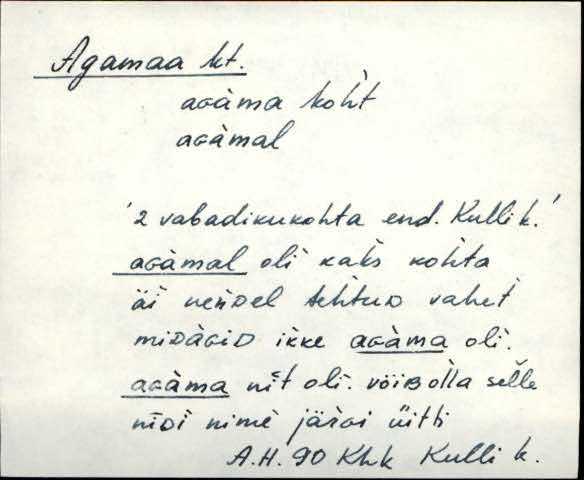 Agamaa kt.
aɢàma koh́t
aɢàmal
'2 vabadikukohta end. Kulli k.'
aɢàmal oĺi kaks kohta
äi neńdel tehtuᴅ vahet́
miᴅàɢiᴅ ikke aɢàma oĺi.
aɢàma nit́ oĺi. võiʙ oĺla seĺle
niᴅi nime järɢi üitti
A.H. 90 Khk Kulli k.